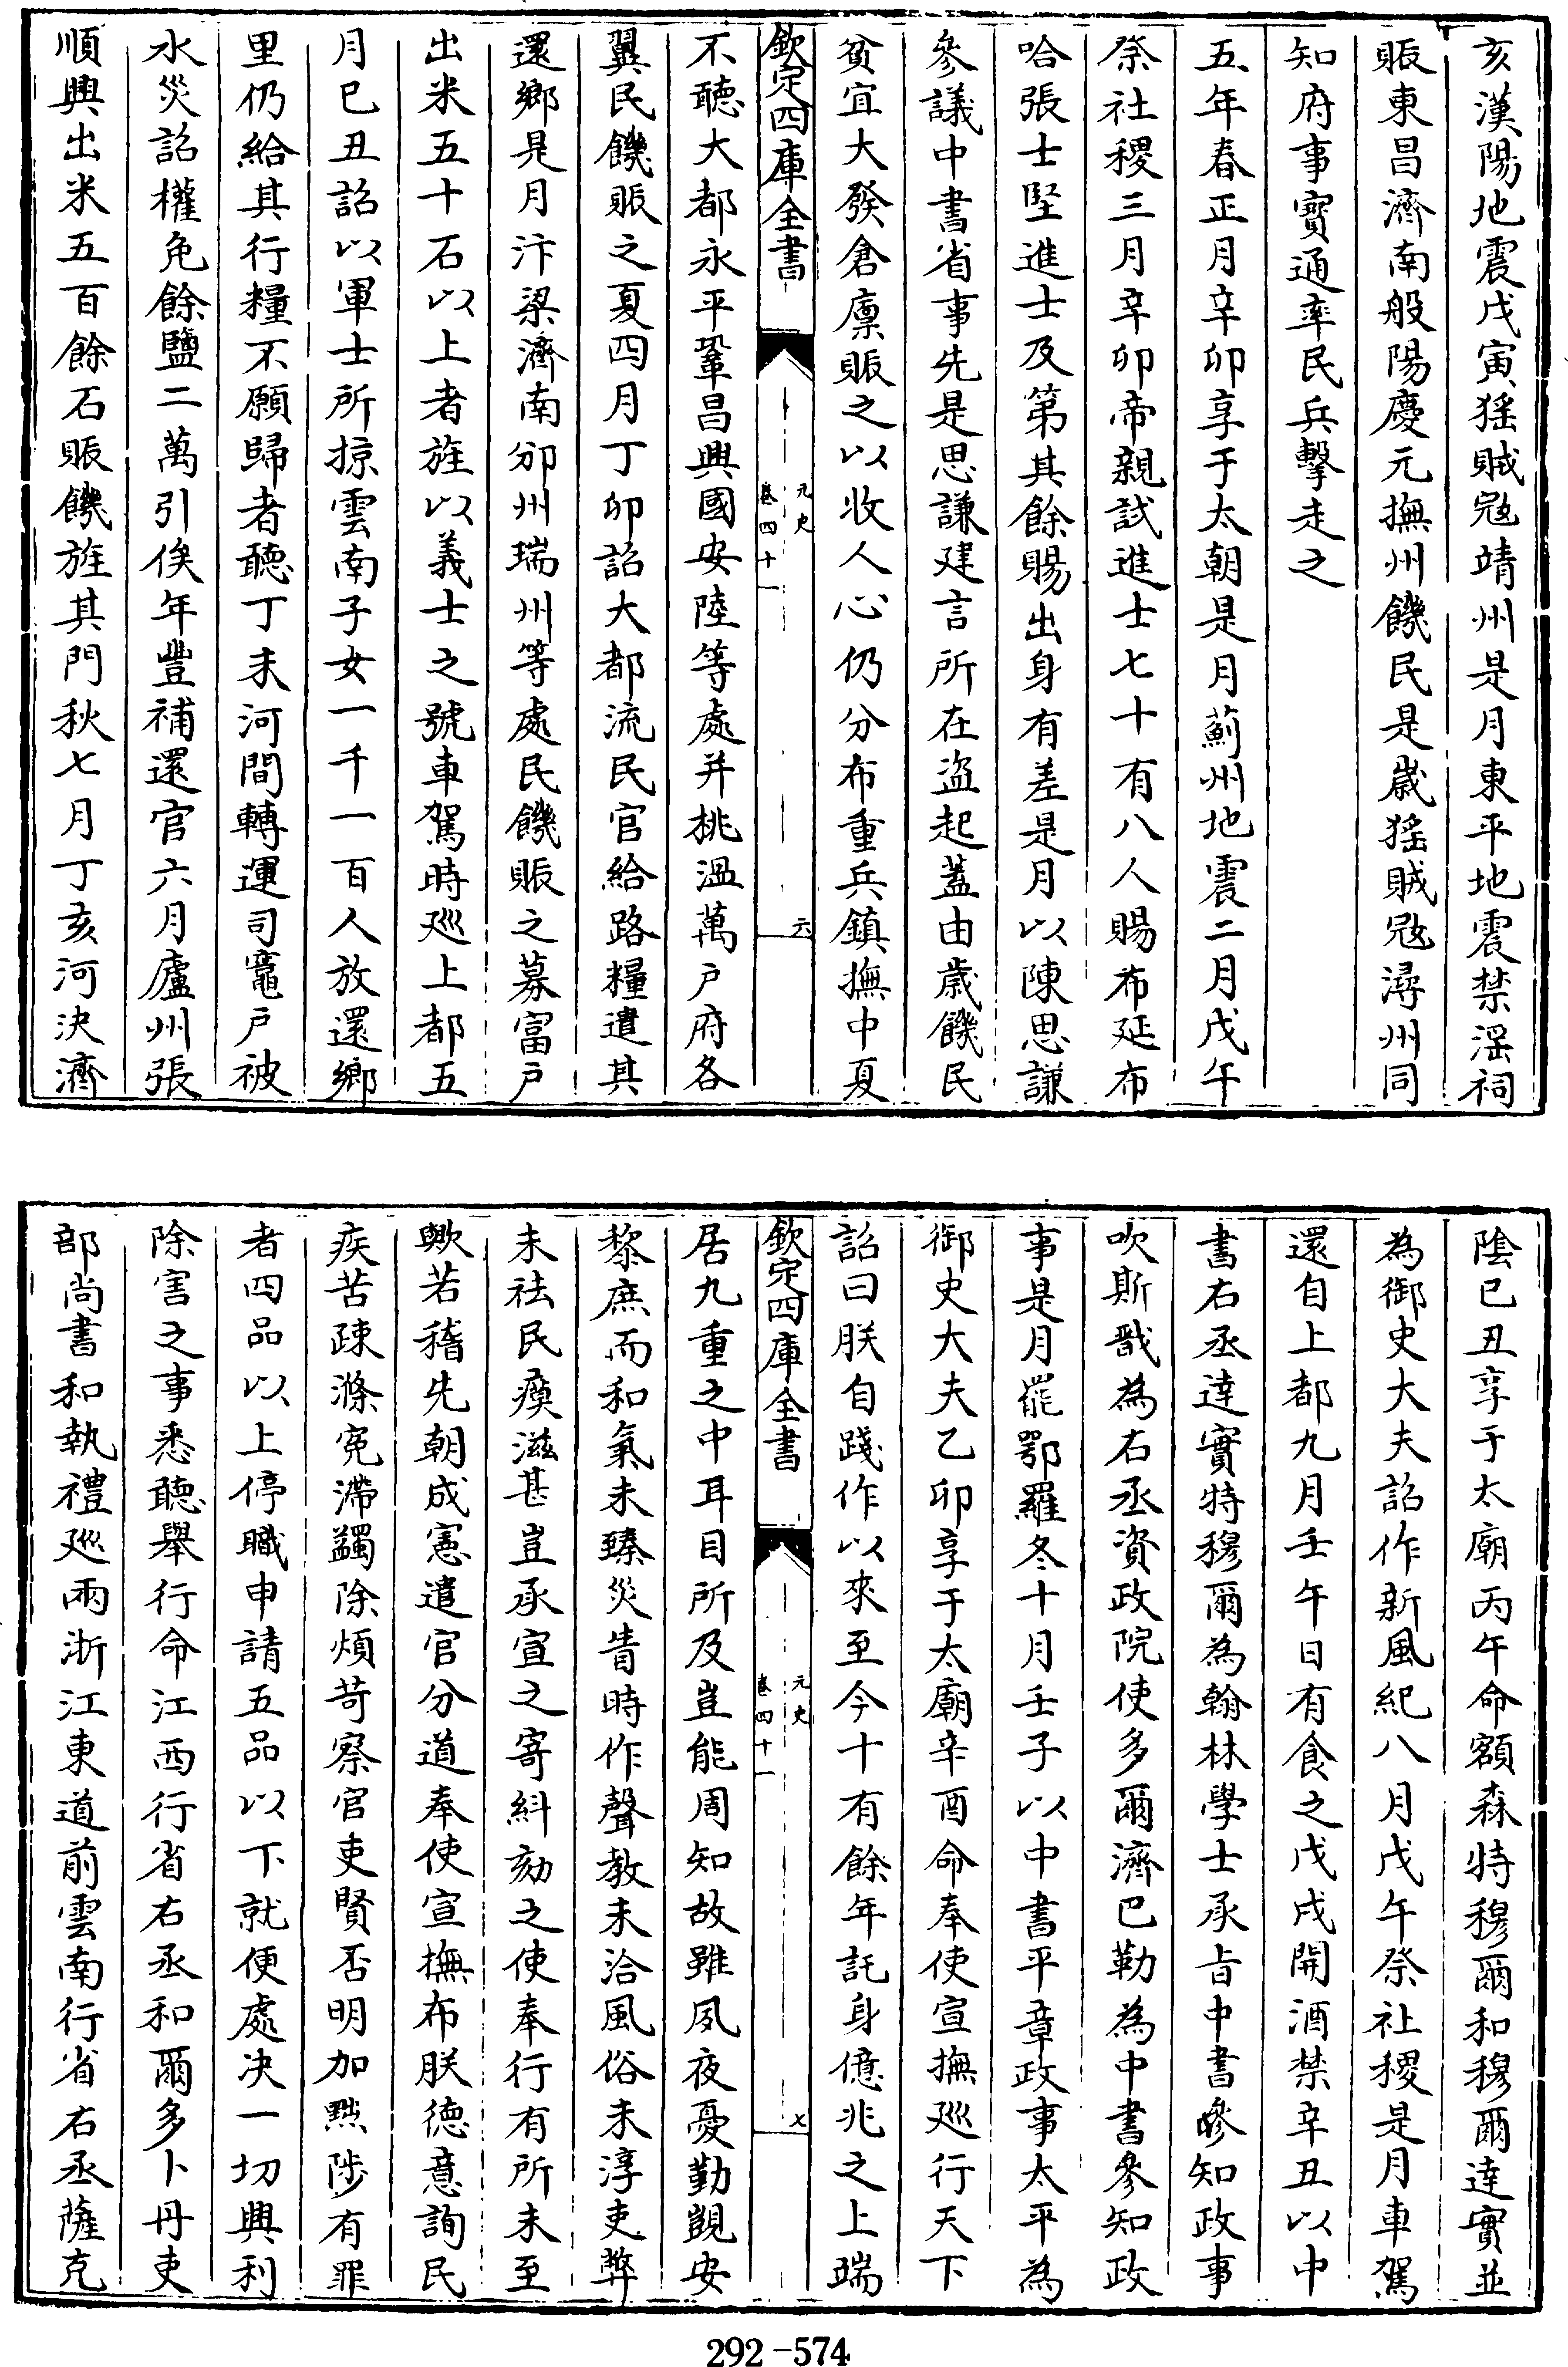 亥漢陽地震戊寅猺賊寇靖州是月東平地震禁淫祠
賑東昌濟南般陽慶元撫州饑民是歲猺賊寇潯州同
知府事寶通率民兵擊走之
五年春正月辛卯享于太朝是月薊州地震二月戊午
祭社稷三月辛卯帝親試進士七十有八人賜布延布
哈張士堅進士及第其餘賜出身有差是月以陳思謙
參議中書省事先是思謙建言所在盜起蓋由歲饑民
貧宜大發倉廩賑之以收人心仍分布重兵鎮撫中夏
欽定四庫全書
元史
卷四十一
六
不聽大都永平鞏昌興國安陸等處并桃溫萬户府各
翼民饑賑之夏四月丁卯詔大都流民官給路糧遣其
還鄉是月汴梁濟南邠州瑞州等處民饑賑之募富户
出米五十石以上者旌以義士之號車駕時廵上都五
月已丑詔以軍士所掠雲南子女一千一百人放還鄉
里仍給其行糧不願歸者聽丁未河間轉運司竈户被
水災詔權免餘鹽二萬引俟年豐補還官六月廬州張
順興出米五百餘石賑饑旌其門秋七月丁亥河決濟
陰已丑享于太廟丙午命額森特穆爾和穆爾達實並
為御史大夫詔作新風紀八月戊午祭社稷是月車駕
還自上都九月壬午日有食之戊戌開酒禁辛丑以中
書右丞達實特穆爾為翰林學士承旨中書參知政事
吹斯戩為右丞資政院使多爾濟巴勒為中書參知政
事是月罷鄂羅冬十月壬子以中書平章政事太平為
御史大夫乙卯享于太廟辛酉命奉使宣撫廵行天下
詔曰朕自踐作以來至今十有餘年託身億兆之上端
欽定四庫全書
元史
卷四十一
七
居九重之中耳目所及豈能周知故雖夙夜憂勤覬安
黎庶而和氣未臻災眚時作聲教未洽風俗未淳吏弊
未祛民瘼滋甚豈承宣之寄糾劾之使奉行有所未至
歟若稽先朝成憲遣官分道奉使宣撫布朕德意詢民
疾苦疎滌寃滯蠲除煩苛察官吏賢否明加黜陟有罪
者四品以上停職申請五品以下就便處决一切興利
除害之事悉聽舉行命江西行省右丞和爾多卜丹吏
部尚書和執禮廵兩浙江東道前雲南行省右丞薩克
292-574